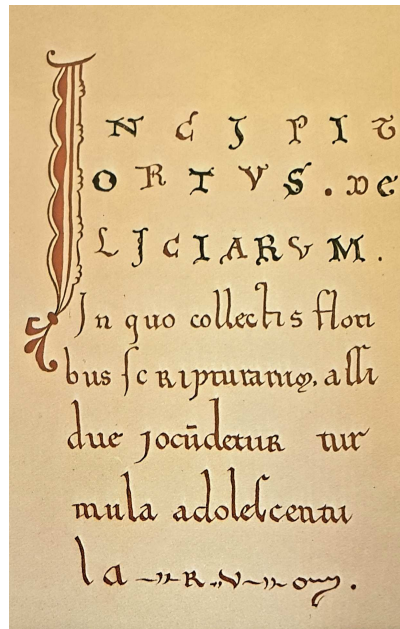 INCJPIT
ORTVS. DE
LJCIARVM.
Jn quo collectis flori
bus ſcripturarum, aſſi
due jocūdetur tur
mula adoleſcentu
la – R – V – m.